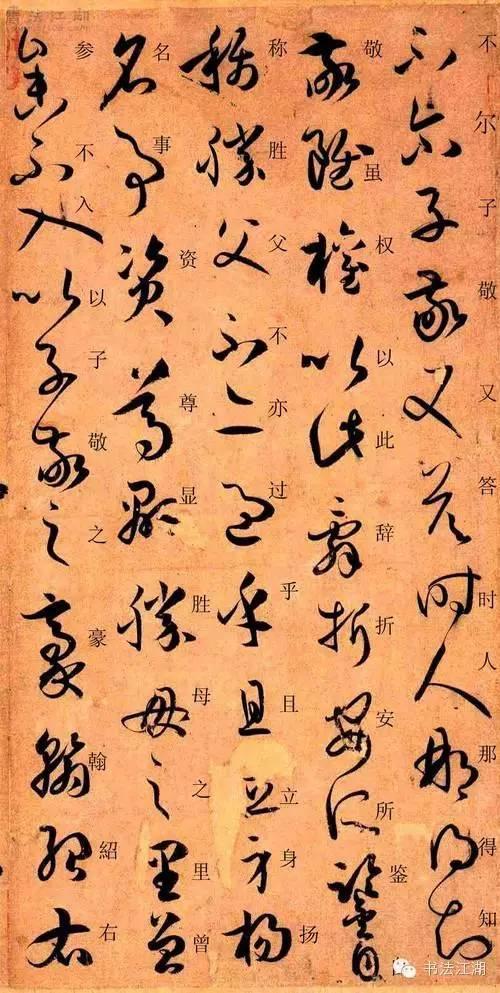 不尔子敬又答时人那得知
敬虽权以此辞折安所鉴
称胜父不亦过乎且立身扬
名事资尊显胜母之里曾
参不入以子敬之豪翰紹右
书法江湖